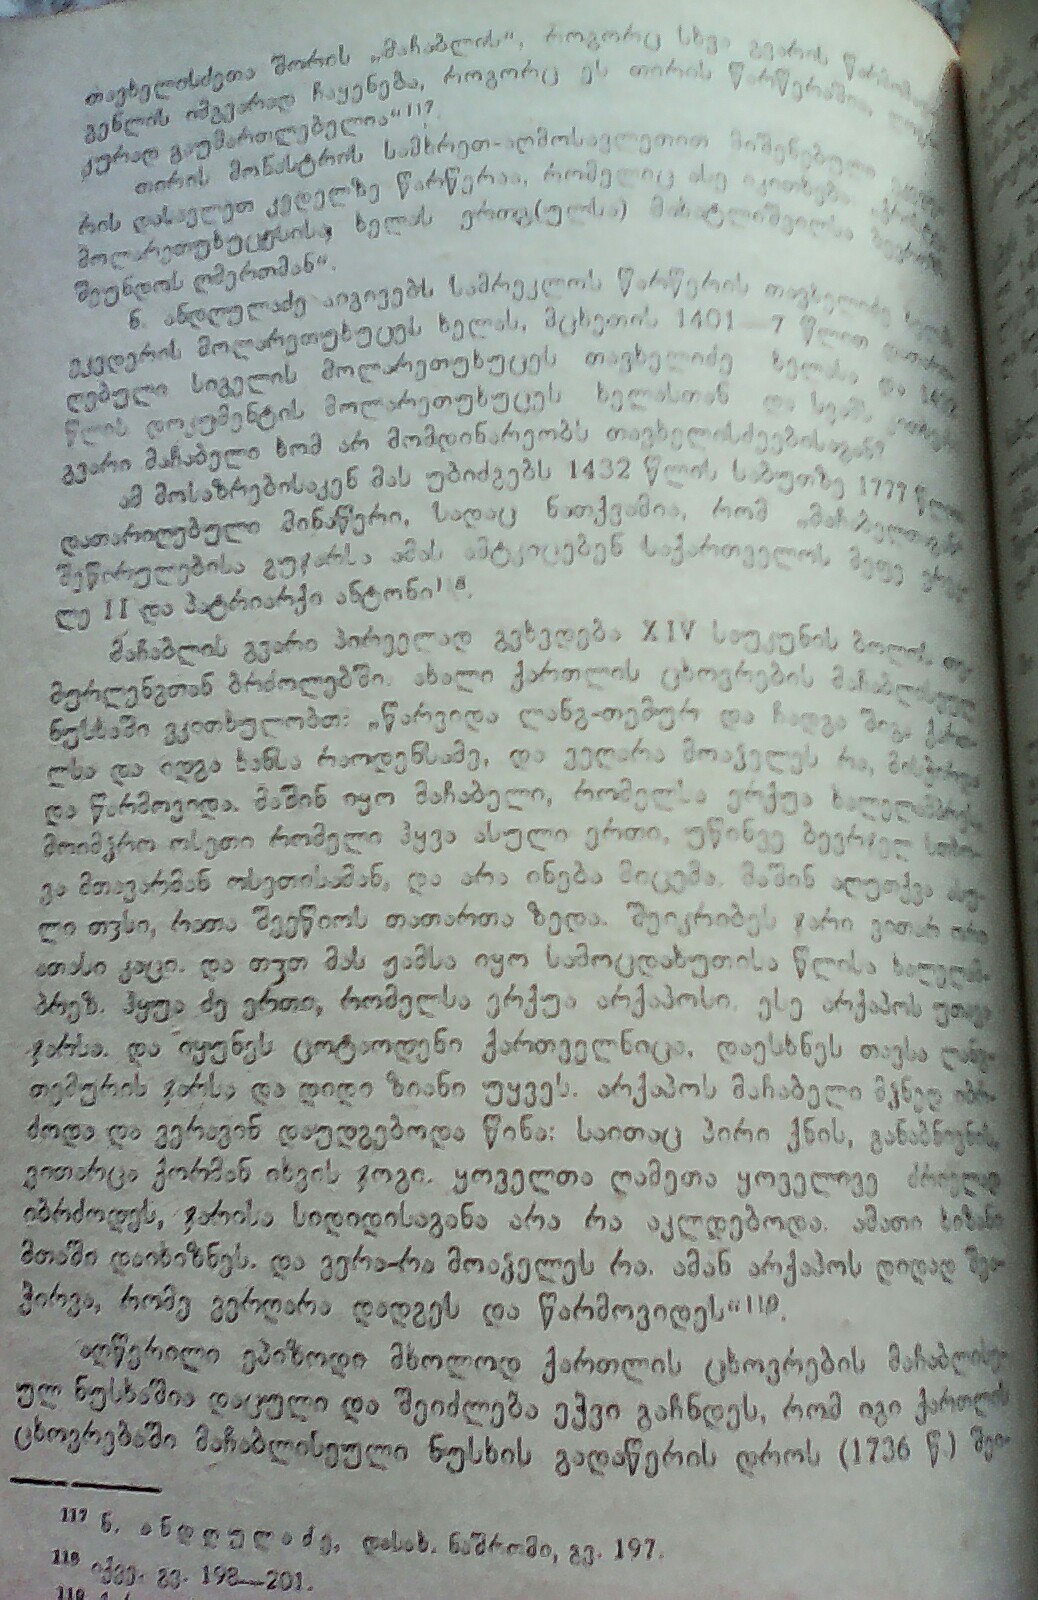 თავხელისძეთა შორის „მაჩაბლის“, როგორც სხვა გვარის
გენლის იმგვარად ჩაყენება, როგორც ეს თირის წარწერაშია,
კურად გაუმართლებელია“¹¹⁷.
თირის მონასტრის სამხრეთ-აღმოსავლეთით მიშენებული
რის დასავლეთ კედელზე წარწერაა, რომელიც ასე იკითხება:
მოლარეთუხუცესისა, ხელას ერთგ(ულსა) მახატლიშვილსა
შეუნდოს ღმერთმან“.
ნ. ანდღულაძე აიგივებს სამრეკლოს წარწერის თავხელიძე ხელას
ეკვდერის მოლარეთუხუცეს ხელას, მცხეთის 1401—7 წლით
ღებული სიგელის მოლარეთუხუცეს თავხელიძე ხელასა და
წლის დოკუმენტის მოლარეთუხუცეს ხელასთან და სვამს კითხვას:
გვარი მაჩაბელი ხომ არ მომდინარეობს თავხელისძეებისაგან?
ამ მოსაზრებისაკენ მას უბიძგებს 1432 წლის საბუთზე 1777 წლით
დათარიღებული მინაწერი, სადაც ნათქვამია, რომ „მაჩაბელთაგან
შეწირულებისა გუჯარსა ამას ამტკიცებენ საქართველოს მეფე ერეკ-
ლე II და პატრიარქი ანტონი¹¹⁸.
მაჩაბლის გვარი პირველად გვხვდება XIV საუკუნის ბოლოს, თე-
მურლენგთან ბრძოლებში. ახალი ქართლის ცხოვრების მაჩაბლისეულ
ნუსხაში ვკითხულობთ: „წარვიდა ლანგ-თემურ და ჩადგა შიგა ქართ-
ლსა და იდგა ხანსა რაოდენსამე, და ვეღარა მოავლეს რა, მისჭირდა
და წარმოვიდა. მაშინ იყო მაჩაბელი, რომელსა ერქუა
მოიმჯრო ოსეთი რომელი ჰყვა ასული ერთი, უწინვე ბევრჯელ სთხო-
ვა მთავარმან ოსეთისამან, და არა ინება მიცემა. მაშინ აღუთქვა ასუ-
ლი თჳსი, რათა შეეწიოს თათართა ზედა. შეიკრიბეს ჯარი ვითარ ორი
ათასი კაცი. და თჳთ მას ჟამსა იყო სამოცდახუთისა წლისა
ბრეზ. ჰყუა ძე ერთი, რომელსა ერქუა არქაპოსი. ესე არქაპოს უთავა
ჯარსა. და იყუნეს ცოტაოდენი ქართველნიცა. დაესხნეს თავსა ლანგ-
თემურის ჯარსა და დიდი ზიანი უყვეს. არქაპოს მაჩაბელი მჴნედ იბრ-
ძოდა და ვერავინ დაუდგებოდა წინა: საითაც პირი ქნის, განაბნივნის,
ვითარცა ქორმან იხვის ჯოგი. ყოველთა ღამეთა ყოველივე ძრიელად
იბრძოდეს, ჯარისა სიდიდისაგანა არა რა აკლდებოდა. ამათი ხიზანი
მთაში დაიხიზნეს. და ვერა-რა მოავლეს რა. ამან არქაპოს დიდად შეა-
ჭირვა, რომე ვერღარა დადგეს და წარმოვიდეს“¹¹⁹.
აღწერილი ეპიზოდი მხოლოდ ქართლის ცხოვრების მაჩაბლისე-
ულ ნუსხაშია დაცული და შეიძლება ეჭვი გაჩნდეს, რომ იგი ქართლის
ცხოვრებაში მაჩაბლისეული ნუსხის გადაწერის დროს (1736 წ.) შეი-
¹¹⁷ ნ. ანდღულაძე, დასახ. ნაშრომი, გვ. 197.
¹¹⁸ იქვე, გვ. 198—201.